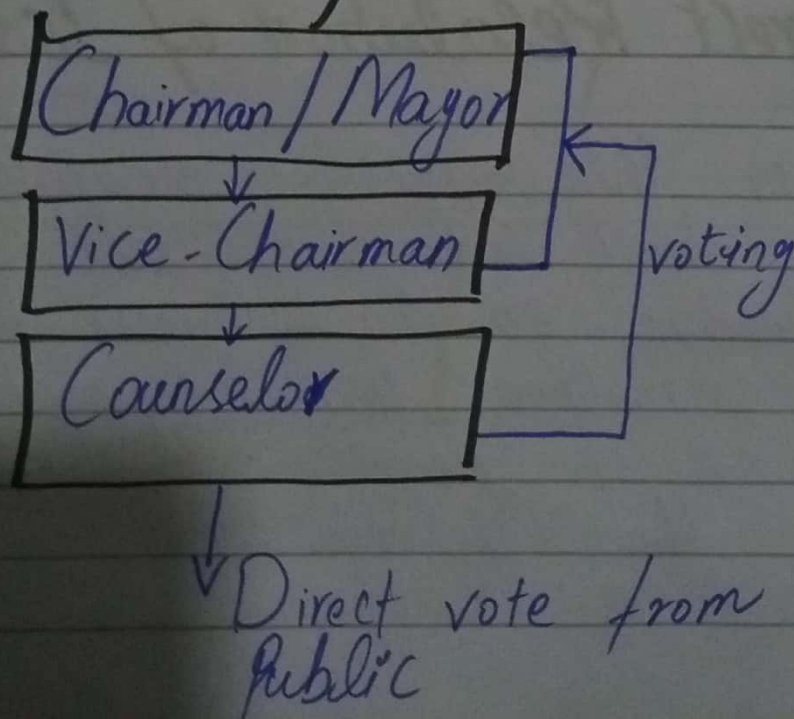 Chairman / Mayor
Vice-Chairman
voting
Counselor
Direct vote from
Public